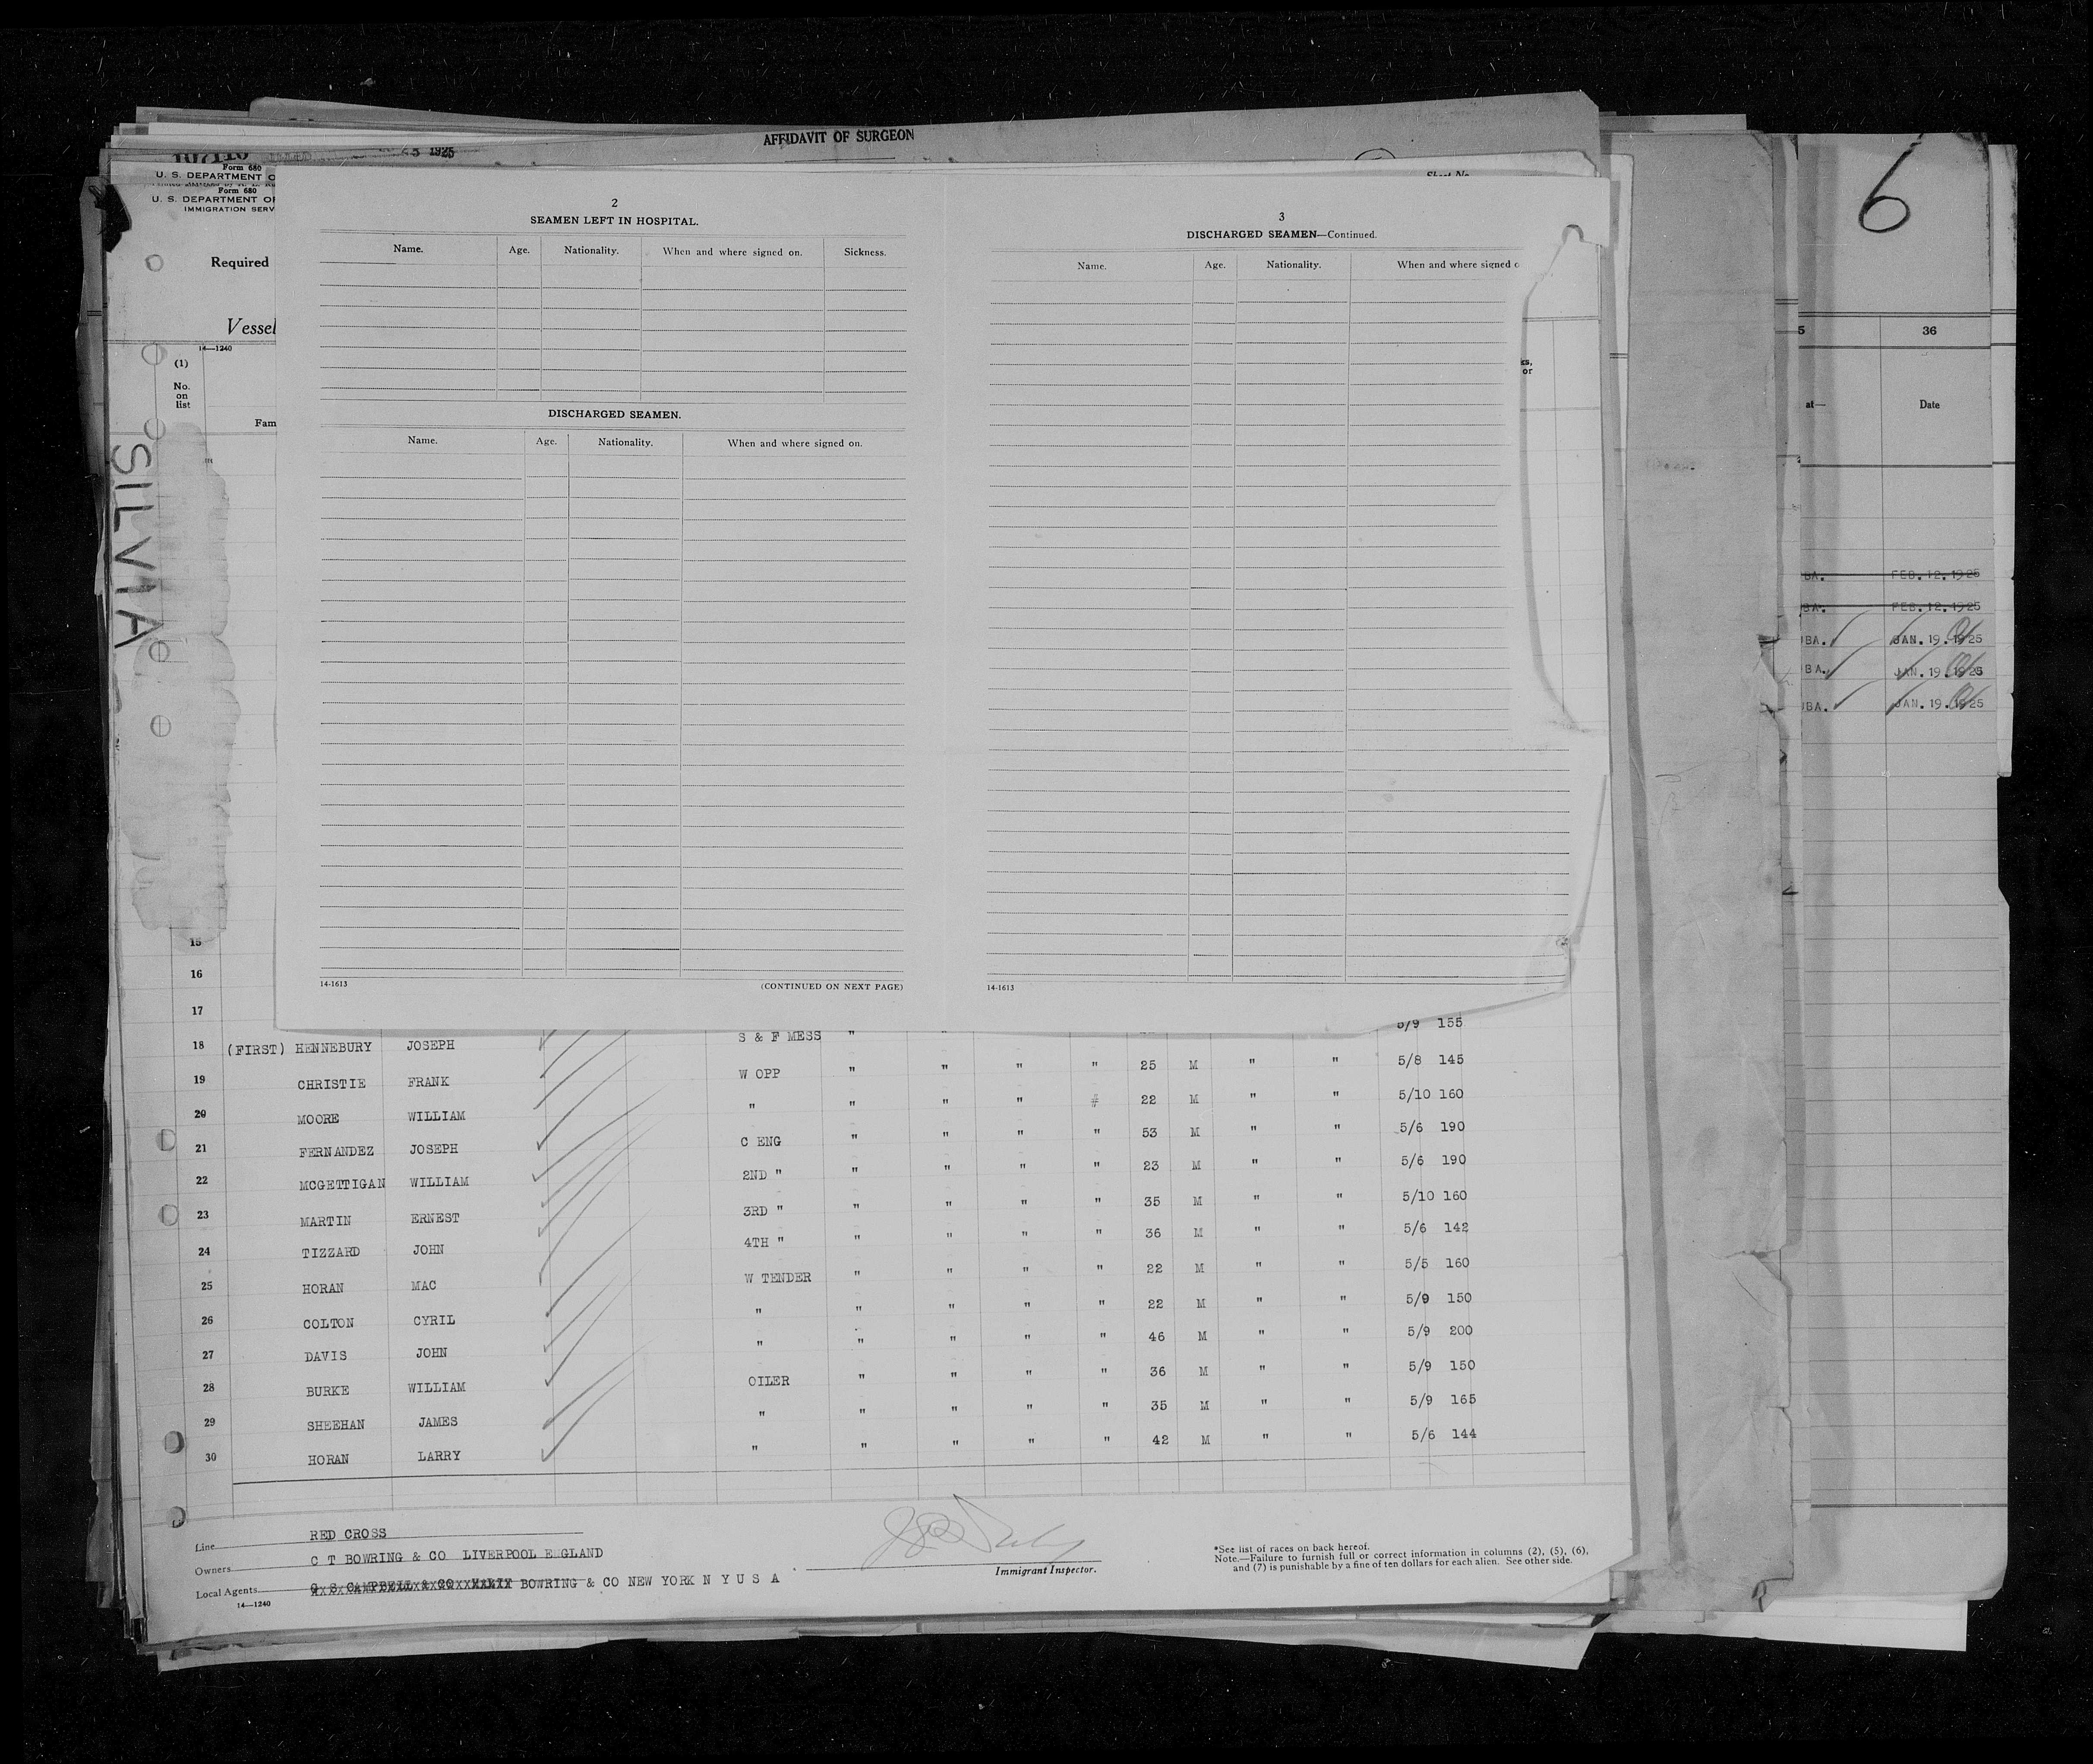 AFFIDAVIT OF SURGEON
5 1925
Form 680
U. S. DEPARTMENT O
Form 680
U. S. DEPARTMENT OF
IMMIGRATION SERV
Required
Vessel
14—1240
(1)
No.
on
list
Fam
SILVIA
Sheet No
6
2
SEAMEN LEFT IN HOSPITAL.
Name. Age. Nationality. When and where signed on. Sickness.
DISCHARGED SEAMEN.
Name. Age. Nationality. When and where signed on.
14-1613 (CONTINUED ON NEXT PAGE)
3
DISCHARGED SEAMEN—Continued.
Name. Age. Nationality. When and where signed o
14-1613
ks,
or
5 36
at— Date
BA. FEB.12.1925
BA. FEB.12.1925
BA. JAN.19.1925
BA. JAN.19.1925
BA. JAN.19.1925
15
16
17
5/9 155
18 (FIRST) HENNEBURY JOSEPH S & F MESS " " " " 25 M " " 5/8 145
19 CHRISTIE FRANK W OPP " " " # 22 M " " 5/10 160
20 MOORE WILLIAM " " " " " 53 M " " 5/6 190
21 FERNANDEZ JOSEPH C ENG " " " " 23 M " " 5/6 190
22 MCGETTIGAN WILLIAM 2ND " " " " " 35 M " " 5/10 160
23 MARTIN ERNEST 3RD " " " " " 36 M " " 5/6 142
24 TIZZARD JOHN 4TH " " " " " 22 M " " 5/5 160
25 HORAN MAC W TENDER " " " " 22 M " " 5/9 150
26 COLTON CYRIL " " " " " 46 M " " 5/9 200
27 DAVIS JOHN " " " " " 36 M " " 5/9 150
28 BURKE WILLIAM OILER " " " " 35 M " " 5/9 165
29 SHEEHAN JAMES " " " " " 42 M " " 5/6 144
30 HORAN LARRY " " " " "
Line RED CROSS
Owners C T BOWRING & CO LIVERPOOL E GLAND
Local Agents G S CAMPBELL & CO BOWRING & CO NEW YORK N Y U S A
14—1240
Immigrant Inspector.
*See list of races on back hereof.
Note.—Failure to furnish full or correct information in columns (2), (5), (6),
and (7) is punishable by a fine of ten dollars for each alien. See other side.